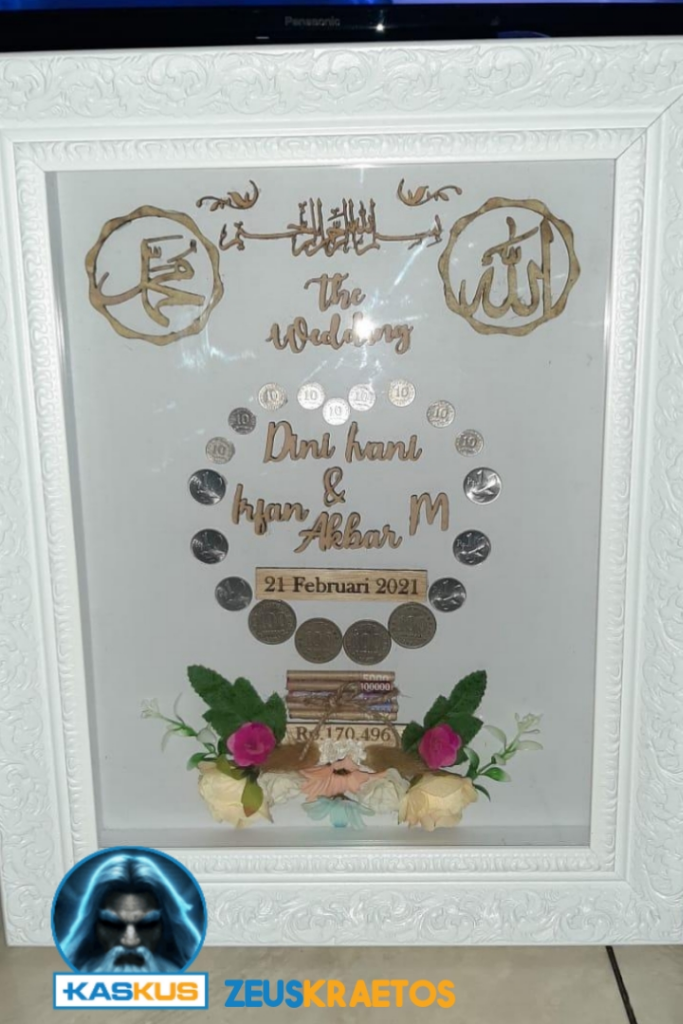 Panasonic
بسم الله الرحمن الرحيم
محمد
الله
The
Wedding
10 10 10 10
10
10 10
10 10
Dini hani
&
Irfan M
Akbar
21 Februari 2021
100 100 100 100
5000
100000
Rp.170.496
KASKUS ZEUSKRAETOS